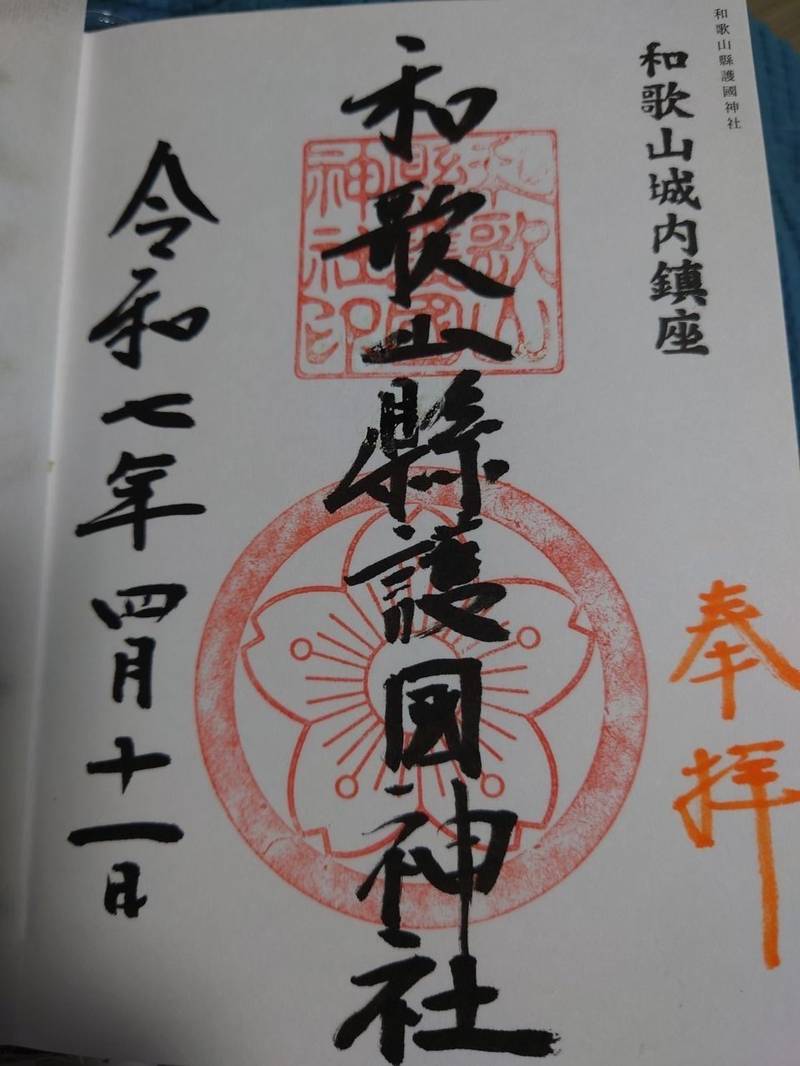 和歌山縣護國神社
和歌山城内鎮座
奉拝
和歌山縣護國神社
和歌山
縣護國
神社印
令和七年四月十一日